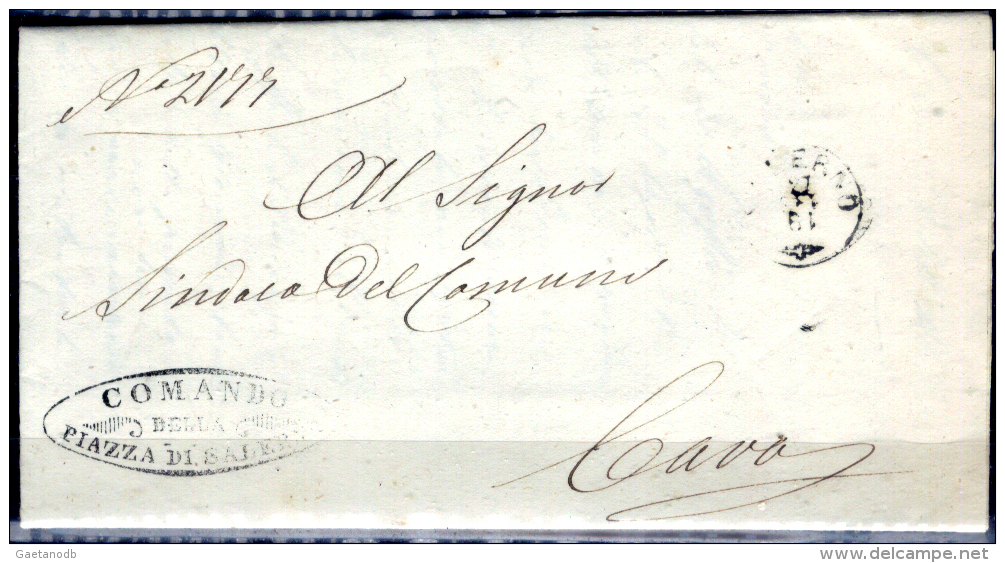 Al Signor
Sindaco Del Comune
Cava
COMANDO
DELLA
PIAZZA DI SALER
ERNO
61
Gaetanodb
www.delcampe.net